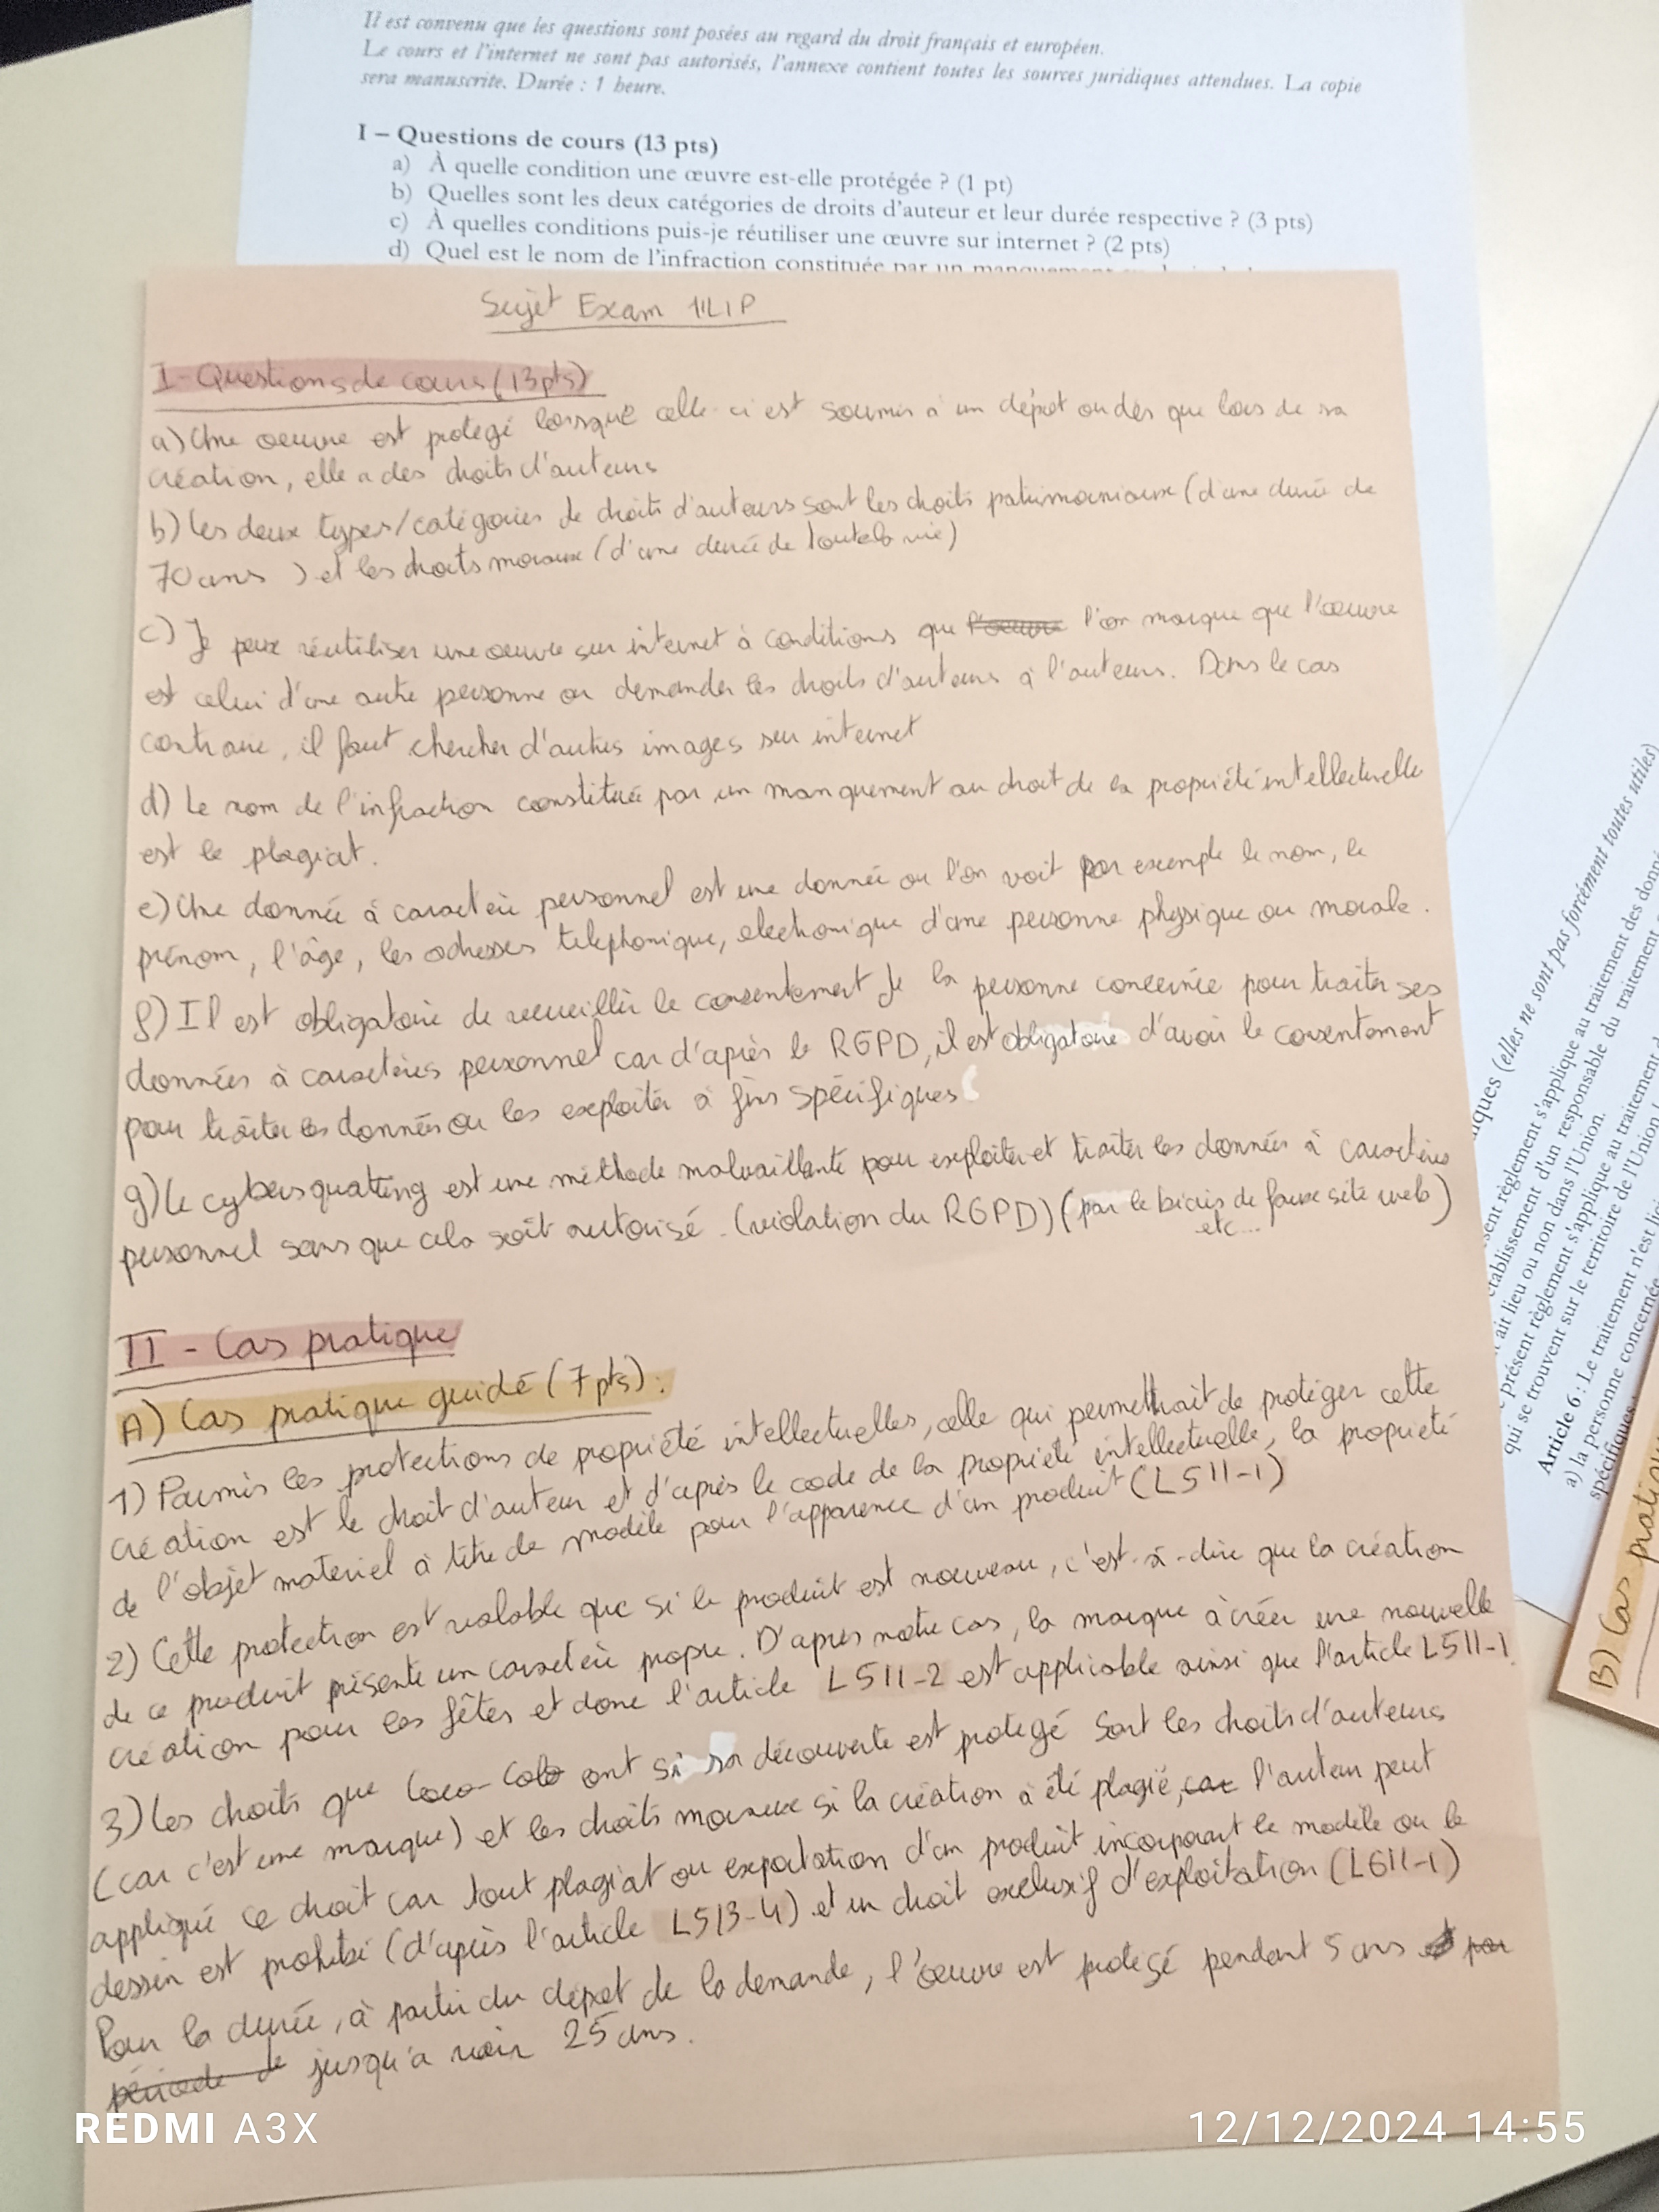 Il est convenu que les questions sont posées au regard du droit français et européen.
Le cours et l'internet ne sont pas autorisés, l'annexe contient toutes les sources juridiques attendues. La copie
sera manuscrite. Durée : 1 heure.
I – Questions de cours (13 pts)
a) À quelle condition une œuvre est-elle protégée ? (1 pt)
b) Quelles sont les deux catégories de droits d'auteur et leur durée respective ? (3 pts)
c) À quelles conditions puis-je réutiliser une œuvre sur internet ? (2 pts)
d) Quel est le nom de l'infraction constituée par un manquement
Sujet Exam
I - Questions de cours (13 pts)
a) Une oeuvre est protegé lorsque celle-ci est soumis à un dépot ou dès que lors de sa
création, elle a des droits d'auteurs
b) les deux types/catégories de droits d'auteurs sont les droits patrimoniaux (d'une durée de
70 ans ) et les droits moraux (d'une durée de toute la vie)
c) Je peux réutiliser une oeuvre sur internet à conditions que l'oeuvre l'on marque que l'oeuvre
est celui d'une autre personne ou demander les droits d'auteurs à l'auteurs. Dans le cas
contraire, il faut chercher d'autres images sur internet
d) Le nom de l'infraction constituée par un manquement au droit de la propriété intellectuelle
est le plagiat.
e) Une donnée à caractère personnel est une donnée ou l'on voit par exemple le nom, le
prénom, l'âge, les adresses telephonique, electronique d'une personne physique ou morale.
f) Il est obligatoire de recueillir le consentement de la personne concernée pour traiter ses
données à caractères personnel car d'après le RGPD, il est obligatoire d'avoir le consentement
pour traiter les données ou les exploiter à fins spécifiques
g) Le cybersquatting est une méthode malvaillante pour exploiter et traiter les données à caractères
personnel sans que cela soit autorisé. (violation du RGPD) (par le biais de faux site web)
etc...
II - Cas pratique
A) Cas pratique guidé (7 pts) :
1) Parmis les protections de propriété intellectuelles, celle qui permettrait de protéger cette
création est le droit d'auteur et d'après le code de la propriété intellectuelle, la propriété
de l'objet materiel à titre de modèle pour l'apparence d'un produit (L511-1)
2) Cette protection est valable que si le produit est nouveau, c'est-à-dire que la création
de ce produit présente un caractère propre. D'après notre cas, la marque à créer une nouvelle
création pour les fêtes et donc l'article L511-2 est applicable ainsi que l'article L511-1.
3) Les droits que Coca-Cola ont si sa découverte est protegé sont les droits d'auteurs
(car c'est une marque) et les droits moraux si la création a été plagié, car l'auteur peut
appliqué ce droit car tout plagiat ou exportation d'un produit incorporant le modèle ou le
dessin est prohibé (d'après l'article L513-4) et un droit exclusif d'exploitation (L611-1)
Pour la durée, à partir du dépot de la demande, l'oeuvre est protegé pendant 5 ans par
période de jusqu'a voir 25 ans.
iques (elles ne sont pas forcément toutes utiles)
sent règlement s'applique au traitement des donné
établissement d'un responsable du traitement
ait lieu ou non dans l'Union.
présent règlement s'applique au traitement d
qui se trouvent sur le territoire de l'Union
Article 6 : Le traitement n'est lic
a) la personne concernée
spécifiques
B) Cas pratique
REDMI A3X
12/12/2024 14:55